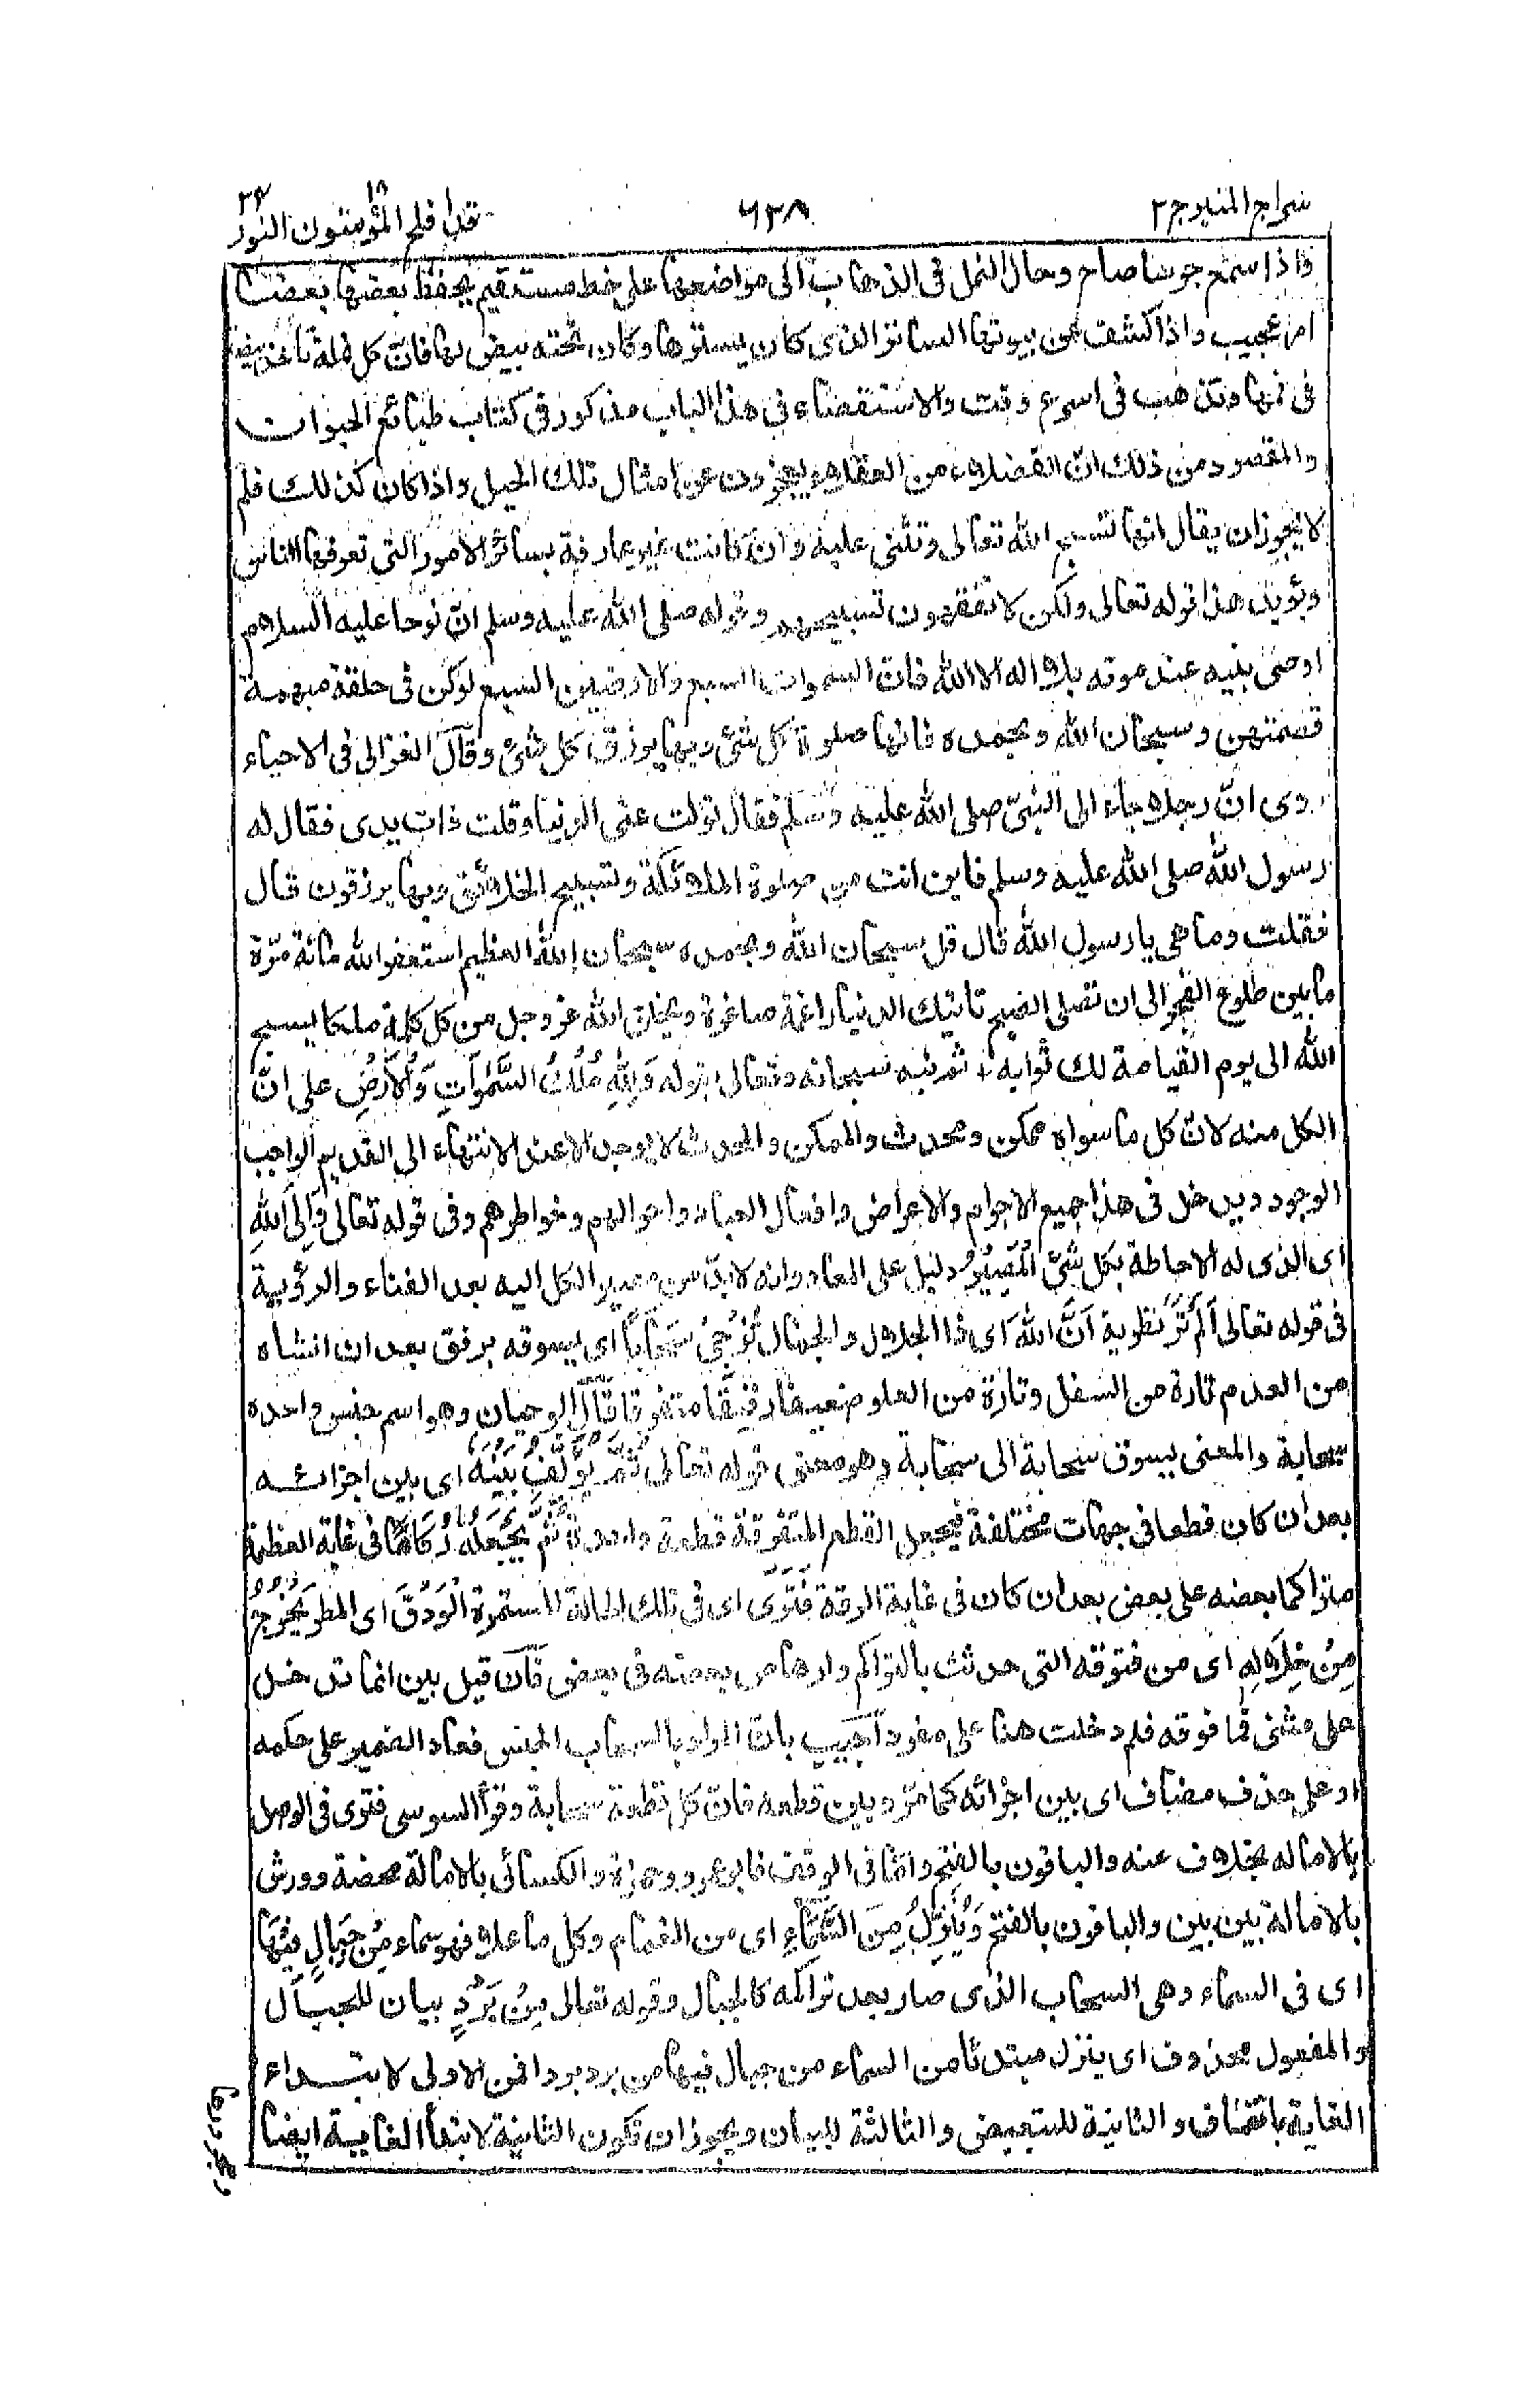 سراج المنير ج ٢
٦٣٨
قد افلح المؤمنون ١٨ النور ٢٤
فاذا سمع جرسا صاح وحال النمل فى الذهاب الى مواضعها على خط مستقيم يحفظ بعضها بعضا
امر عجيب واذا كشفت عن بيوتها الساتر الذى كان يسترها وكان تحته بيض لها فانّ كل نملة تأخذ بيضة
فى فمها وتذهب فى اسرع وقت والاستقصاء فى هذا الباب مذكور فى كتاب طبائع الحيوان
والمقصود من ذلك انّ الفضلاء من العقلاء يعجزون عن امثال تلك الحيل واذا كان كذلك فلم
لا يجوز ان يقال انها تسبح الله تعالى وتثنى عليه وان كانت غير عارفة بسائر الامور التى تعرفها الناس
ويؤيد هذا قوله تعالى ولكن لا تفقهون تسبيحهم وقوله صلى الله عليه وسلم انّ نوحا عليه السلام
اوصى بنيه عند موته بلا اله الا الله فان السموات السبع والارضين السبع لو كن فى حلقة مبهمة
قصمتهن وسبحان الله وبحمده فانها صلوة كل شئ وبها يرزق كل شئ وقال الغزالى فى الاحياء
روى انّ رجلا جاء الى النبىّ صلى الله عليه وسلم فقال تولت عنى الدنيا وقلت ذات يدى فقال له
رسول الله صلى الله عليه وسلم فاين انت من صلوة الملائكة وتسبيح الخلائق وبها يرزقون قال
فقلت وما هى يا رسول الله قال قل سبحان الله وبحمده سبحان الله العظيم استغفر الله مائة مرّة
ما بين طلوع الفجر الى ان تصلى الصبح تاتيك الدنيا راغمة صاغرة ويخلق الله عز وجل من كل كلمة ملكا يسبح
الله الى يوم القيامة لك ثوابه ثم نبه سبحانه وتعالى بقوله وَلِلّٰهِ مُلْكُ السَّمٰوَاتِ وَالْاَرْضِ على انّ
الكل منه لانّ كل ما سواه ممكن ومحدث والممكن والمحدث لا يوجد الا عند الانتهاء الى القديم الواجب
الوجود ويدخل فى هذا جميع الاجرام والاعراض وافعال العباد واحوالهم وخواطرهم وفى قوله تعالى وَاِلَى اللهِ
اى الذى له الاحاطة بكل شئ الْمَصِيْرُ دليل على المعاد وانه لا بدّ من مصير الكل اليه بعد الفناء والرؤية
فى قوله تعالى اَلَمْ تَرَ نظرية اَنَّ اللهَ اى ذا الجلال والجمال يُزْجِىْ سَحَابًا اى يسوقه برفق بعد ان انشاه
من العدم تارة من السفل وتارة من العلو ضعيفا رقيقا متفرقا قال ابو حيان وهو اسم جنس واحده
سحابة والمعنى يسوق سحابة الى سحابة وهو معنى قوله تعالى ثُمَّ يُؤَلِّفُ بَيْنَهٗ اى بين اجزائه
بعد ان كان قطعا فى جهات مختلفة فيجعل القطع المتفرقة قطعة واحدة ثُمَّ يَجْعَلُهٗ رُكَامًا فى غاية العظمة
متراكما بعضه على بعض بعد ان كان فى غاية الرقة فَتَرَى اى فى تلك الحالة المستمرة الْوَدْقَ اى المطر يَخْرُجُ
مِنْ خِلَالِهٖ اى من فتوقه التى حدثت بالتراكم وارهاص بعضه فى بعض فان قيل بين انما تدخل
على مثنى فما فوقه فلم دخلت هنا على مفرد اجيب بانّ المراد بالسحاب الجنس فعاد الضمير على حكمه
او على حذف مضاف اى بين اجزائه كما مرّ وبين قطعه فانّ كل قطعة سحابة وقرأ السوسى فترى فى الوصل
بالاماله بخلاف عنه والباقون بالفتح وامّا فى الوقف فابو عمرو وحمزة والكسائى بالامالة محضة وورش
بالامالة بين بين والباقون بالفتح وَيُنَزِّلُ مِنَ السَّمَاءِ اى من الغمام وكل ما علا فهو سماء مِنْ جِبَالٍ فِيْهَا
اى فى السماء وهى السحاب الذى صار بعد تراكمه كالجبال وقوله تعالى مِنْ بَرَدٍ بيان للجبال
والمفعول محذوف اى ينزل مبتدئا من السماء من جبال فيها من برد بردا فمن الاولى لابتداء
الغاية باتفاف والثانية للتبعيض والثالثة للبيان ويجوز ان تكون الثانية لابتدأ الغاية ايضا